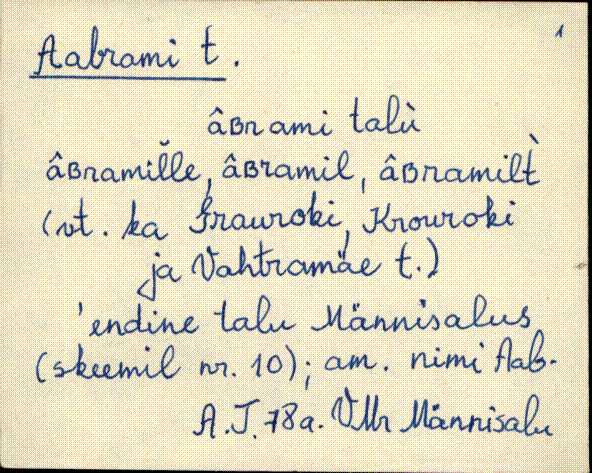 1
Aabrami t.
âʙrami talù
âʙramil̆le, âʙramil, âʙramilt̀
(vt. ka Grauroki, Krouroki
ja Vahtramäe t.)
'endine talu Männisalus
(skeemil nr. 10); am. nimi Aab-
A.J. 78a. VMr Männisalu